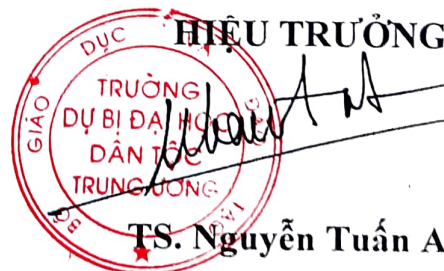 HIỆU TRƯỞNG
BỘ GIÁO DỤC
TRƯỜNG
DỰ BỊ ĐẠI HỌC
DÂN TỘC
TRUNG ƯƠNG
TS. Nguyễn Tuấn A